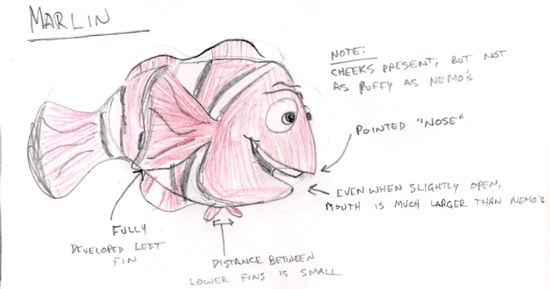 MARLIN
NOTE:
CHEEKS PRESENT, BUT NOT
AS PUFFY AS NEMO'S
POINTED "NOSE"
EVEN WHEN SLIGHTLY OPEN,
MOUTH IS MUCH LARGER THAN NEMO'S
FULLY
DEVELOPED LEFT
FIN
DISTANCE BETWEEN
LOWER FINS IS SMALL